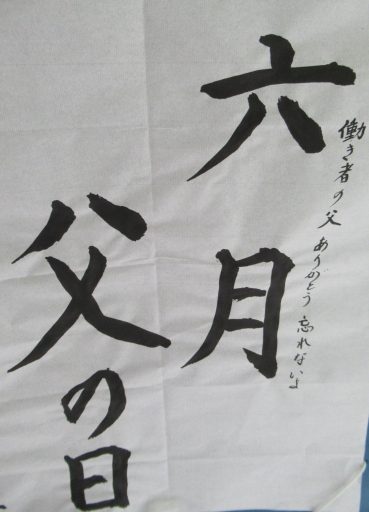 六月
働き者の父 ありがとう 忘れないよ
父の日